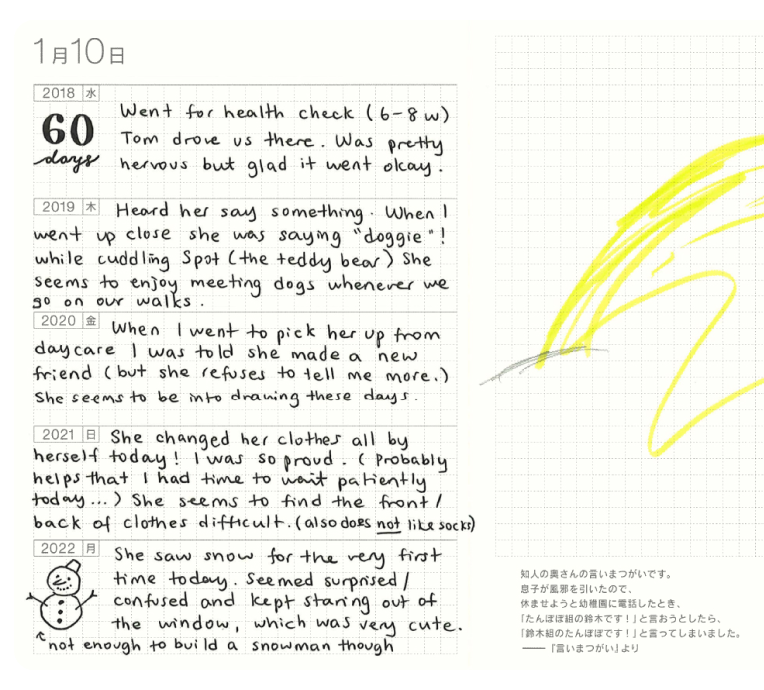 1月10日
2018 水
60
days
Went for health check (6-8w)
Tom drove us there. Was pretty
nervous but glad it went okay.
2019 木
Heard her say something. When I
went up close she was saying "doggie"!
while cuddling Spot (the teddy bear) She
seems to enjoy meeting dogs whenever we
go on our walks.
2020 金
When I went to pick her up from
daycare I was told she made a new
friend (but she refuses to tell me more.)
She seems to be into drawing these days.
2021 日
She changed her clothes all by
herself today! I was so proud. (Probably
helps that I had time to wait patiently
today...) She seems to find the front/
back of clothes difficult. (also does not like socks)
2022 月
She saw snow for the very first
time today. Seemed surprised/
confused and kept staring out of
the window, which was very cute.
not enough to build a snowman though
知人の奥さんの言いまつがいです。
息子が風邪を引いたので、
休ませようと幼稚園に電話したとき、
「たんぽぽ組の鈴木です!」と言おうとしたら、
「鈴木組のたんぽぽです!」と言ってしまいました。
――『言いまつがい』より